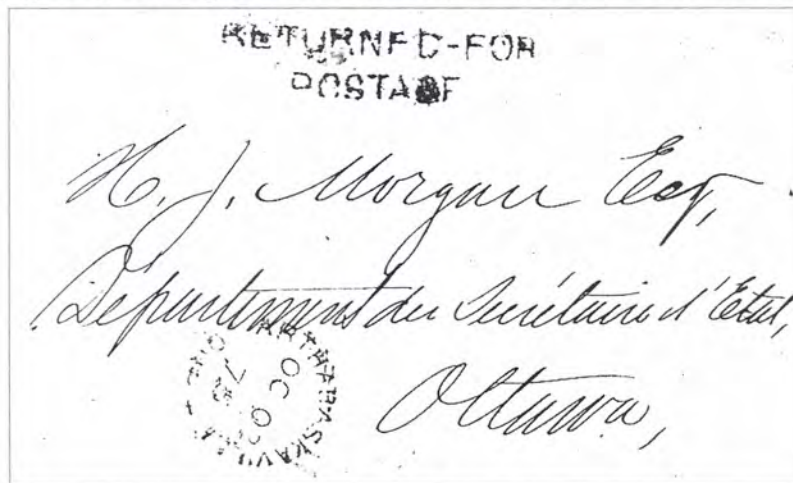 RETURNED-FOR
POSTAGE
H. J. Morgan Esq,
Département du Secrétaire d'Etat,
Ottawa,
ARTHABASKAVILLE
OC